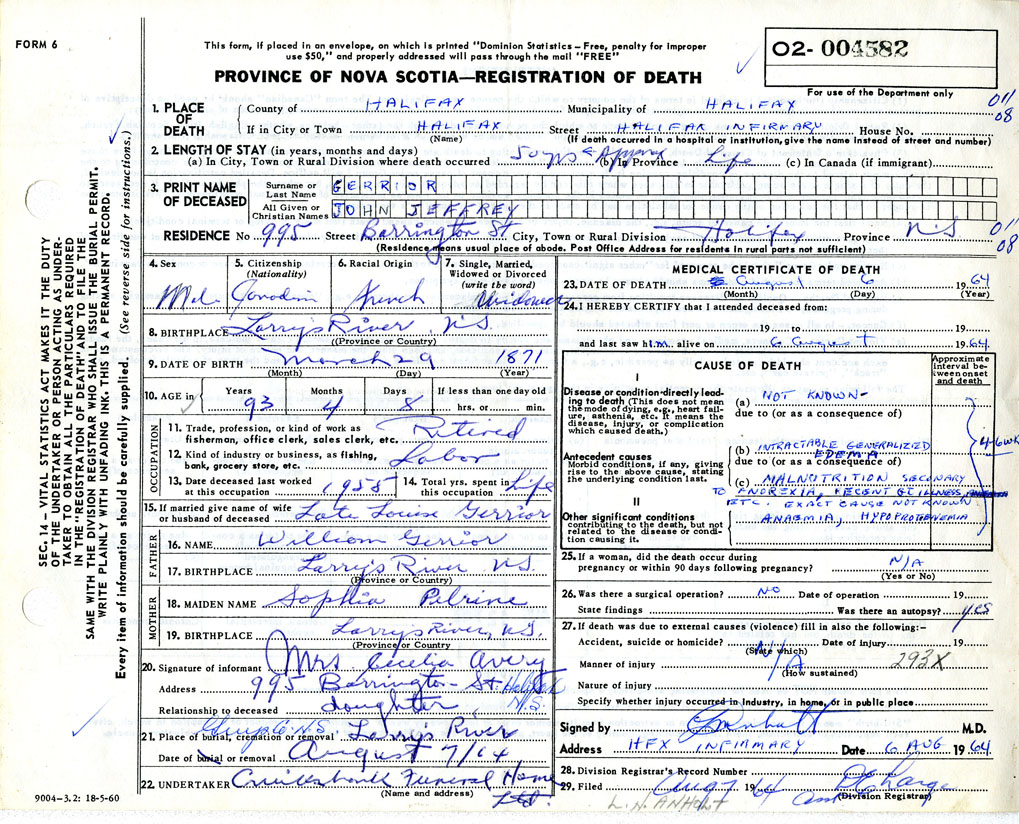 FORM 6
This form, if placed in an envelope, on which is printed "Dominion Statistics – Free, penalty for improper
use $50," and properly addressed will pass through the mail "FREE"
PROVINCE OF NOVA SCOTIA—REGISTRATION OF DEATH
O2- 004582
For use of the Department only
SEC. 14 – VITAL STATISTICS ACT MAKES IT THE DUTY
OF THE UNDERTAKER OR PERSON ACTING AS UNDER-
TAKER TO OBTAIN ALL THE PARTICULARS REQUIRED
IN THE "REGISTRATION OF DEATH" AND TO FILE THE
SAME WITH THE DIVISION REGISTRAR WHO SHALL ISSUE THE BURIAL PERMIT.
WRITE PLAINLY WITH UNFADING INK. THIS IS A PERMANENT RECORD.
Every item of information should be carefully supplied. (See reverse side for instructions.)
1. PLACE OF DEATH
County of HALIFAX Municipality of HALIFAX 011 08
If in City or Town HALIFAX Street HALIFAX INFIRMARY House No.
(Name) (If death occurred in a hospital or institution, give name instead of street and number)
2. LENGTH OF STAY (in years, months and days)
(a) In City, Town or Rural Division where death occurred 50 yrs Approx (b) In Province Life (c) In Canada (if immigrant)
3. PRINT NAME OF DECEASED
Surname or Last Name GERRIOR
All Given or Christian Names JOHN JEFFREY
RESIDENCE No 995 Street Barrington St City, Town or Rural Division Halifax Province N.S 011 08
(Residence means usual place of abode. Post Office Address for residents in rural parts not sufficient)
4. Sex 5. Citizenship (Nationality) 6. Racial Origin 7. Single, Married, Widowed or Divorced (write the word)
Male Canadian French Widower
8. BIRTHPLACE Larry's River N.S.
(Province or Country)
9. DATE OF BIRTH March 29 1871
(Month) (Day) (Year)
10. AGE in Years Months Days If less than one day old
93 4 8 hrs. or min.
OCCUPATION
11. Trade, profession, or kind of work as
fisherman, office clerk, sales clerk, etc. Retired
12. Kind of industry or business, as fishing,
bank, grocery store, etc. Labor
13. Date deceased last worked at this occupation 1955 14. Total yrs. spent in this occupation Life
15. If married give name of wife
or husband of deceased Late Louise Gerrior
FATHER
16. NAME William Gerrior
17. BIRTHPLACE Larry's River N.S.
(Province or Country)
MOTHER
18. MAIDEN NAME Sophia Pelrine
19. BIRTHPLACE Larry's River, N.S.
(Province or Country)
20. Signature of informant Mrs Cecelia Avery
Address 995 Barrington St. Halifax N.S.
Relationship to deceased daughter
21. Place of burial, cremation or removal Guysb. Co. N.S. Larry's River
Date of burial or removal August 7/64
22. UNDERTAKER Cruikshank Funeral Home Ltd.
(Name and address)
9004-3.2: 18-5-60
MEDICAL CERTIFICATE OF DEATH
23. DATE OF DEATH August 6 1964
(Month) (Day) (Year)
24. I HEREBY CERTIFY that I attended deceased from:
19 to 19
and last saw him alive on 6 August 1964
CAUSE OF DEATH
Approximate interval between onset and death
I
Disease or condition directly lead-
ing to death (This does not mean
the mode of dying, e.g., heart fail-
ure, asthenia, etc. It means the
disease, injury, or complication
which caused death.)
(a) NOT KNOWN-
due to (or as a consequence of)
4-6 wk
Antecedent causes
Morbid conditions, if any, giving
rise to the above cause, stating
the underlying condition last.
(b) INTRACTABLE GENERALIZED EDEMA
due to (or as a consequence of)
(c) MALNOTRITION SECONARY
TO ANOREXIA, RECENT GI ILLNESS
ETC. EXACT CAUSE NOT KNOWN.
II
Other significant conditions
contributing to the death, but not
related to the disease or condi-
tion causing it.
ANAEMIA, HYPOPROTENEMIA
25. If a woman, did the death occur during
pregnancy or within 90 days following pregnancy? N/A
(Yes or No)
26. Was there a surgical operation? NO Date of operation 19
State findings Was there an autopsy? yes
27. If death was due to external causes (violence) fill in also the following:-
Accident, suicide or homicide? N/A Date of injury 19
(State which)
Manner of injury 293X
(How sustained)
Nature of injury
Specify whether injury occurred in industry, in home, or in public place.
Signed by M.D.
Address HFX INFIRMARY Date 6 AUG 1964
28. Division Registrar's Record Number
29. Filed Aug 7 1964
(Division Registrar)
L. N. ANHOLT